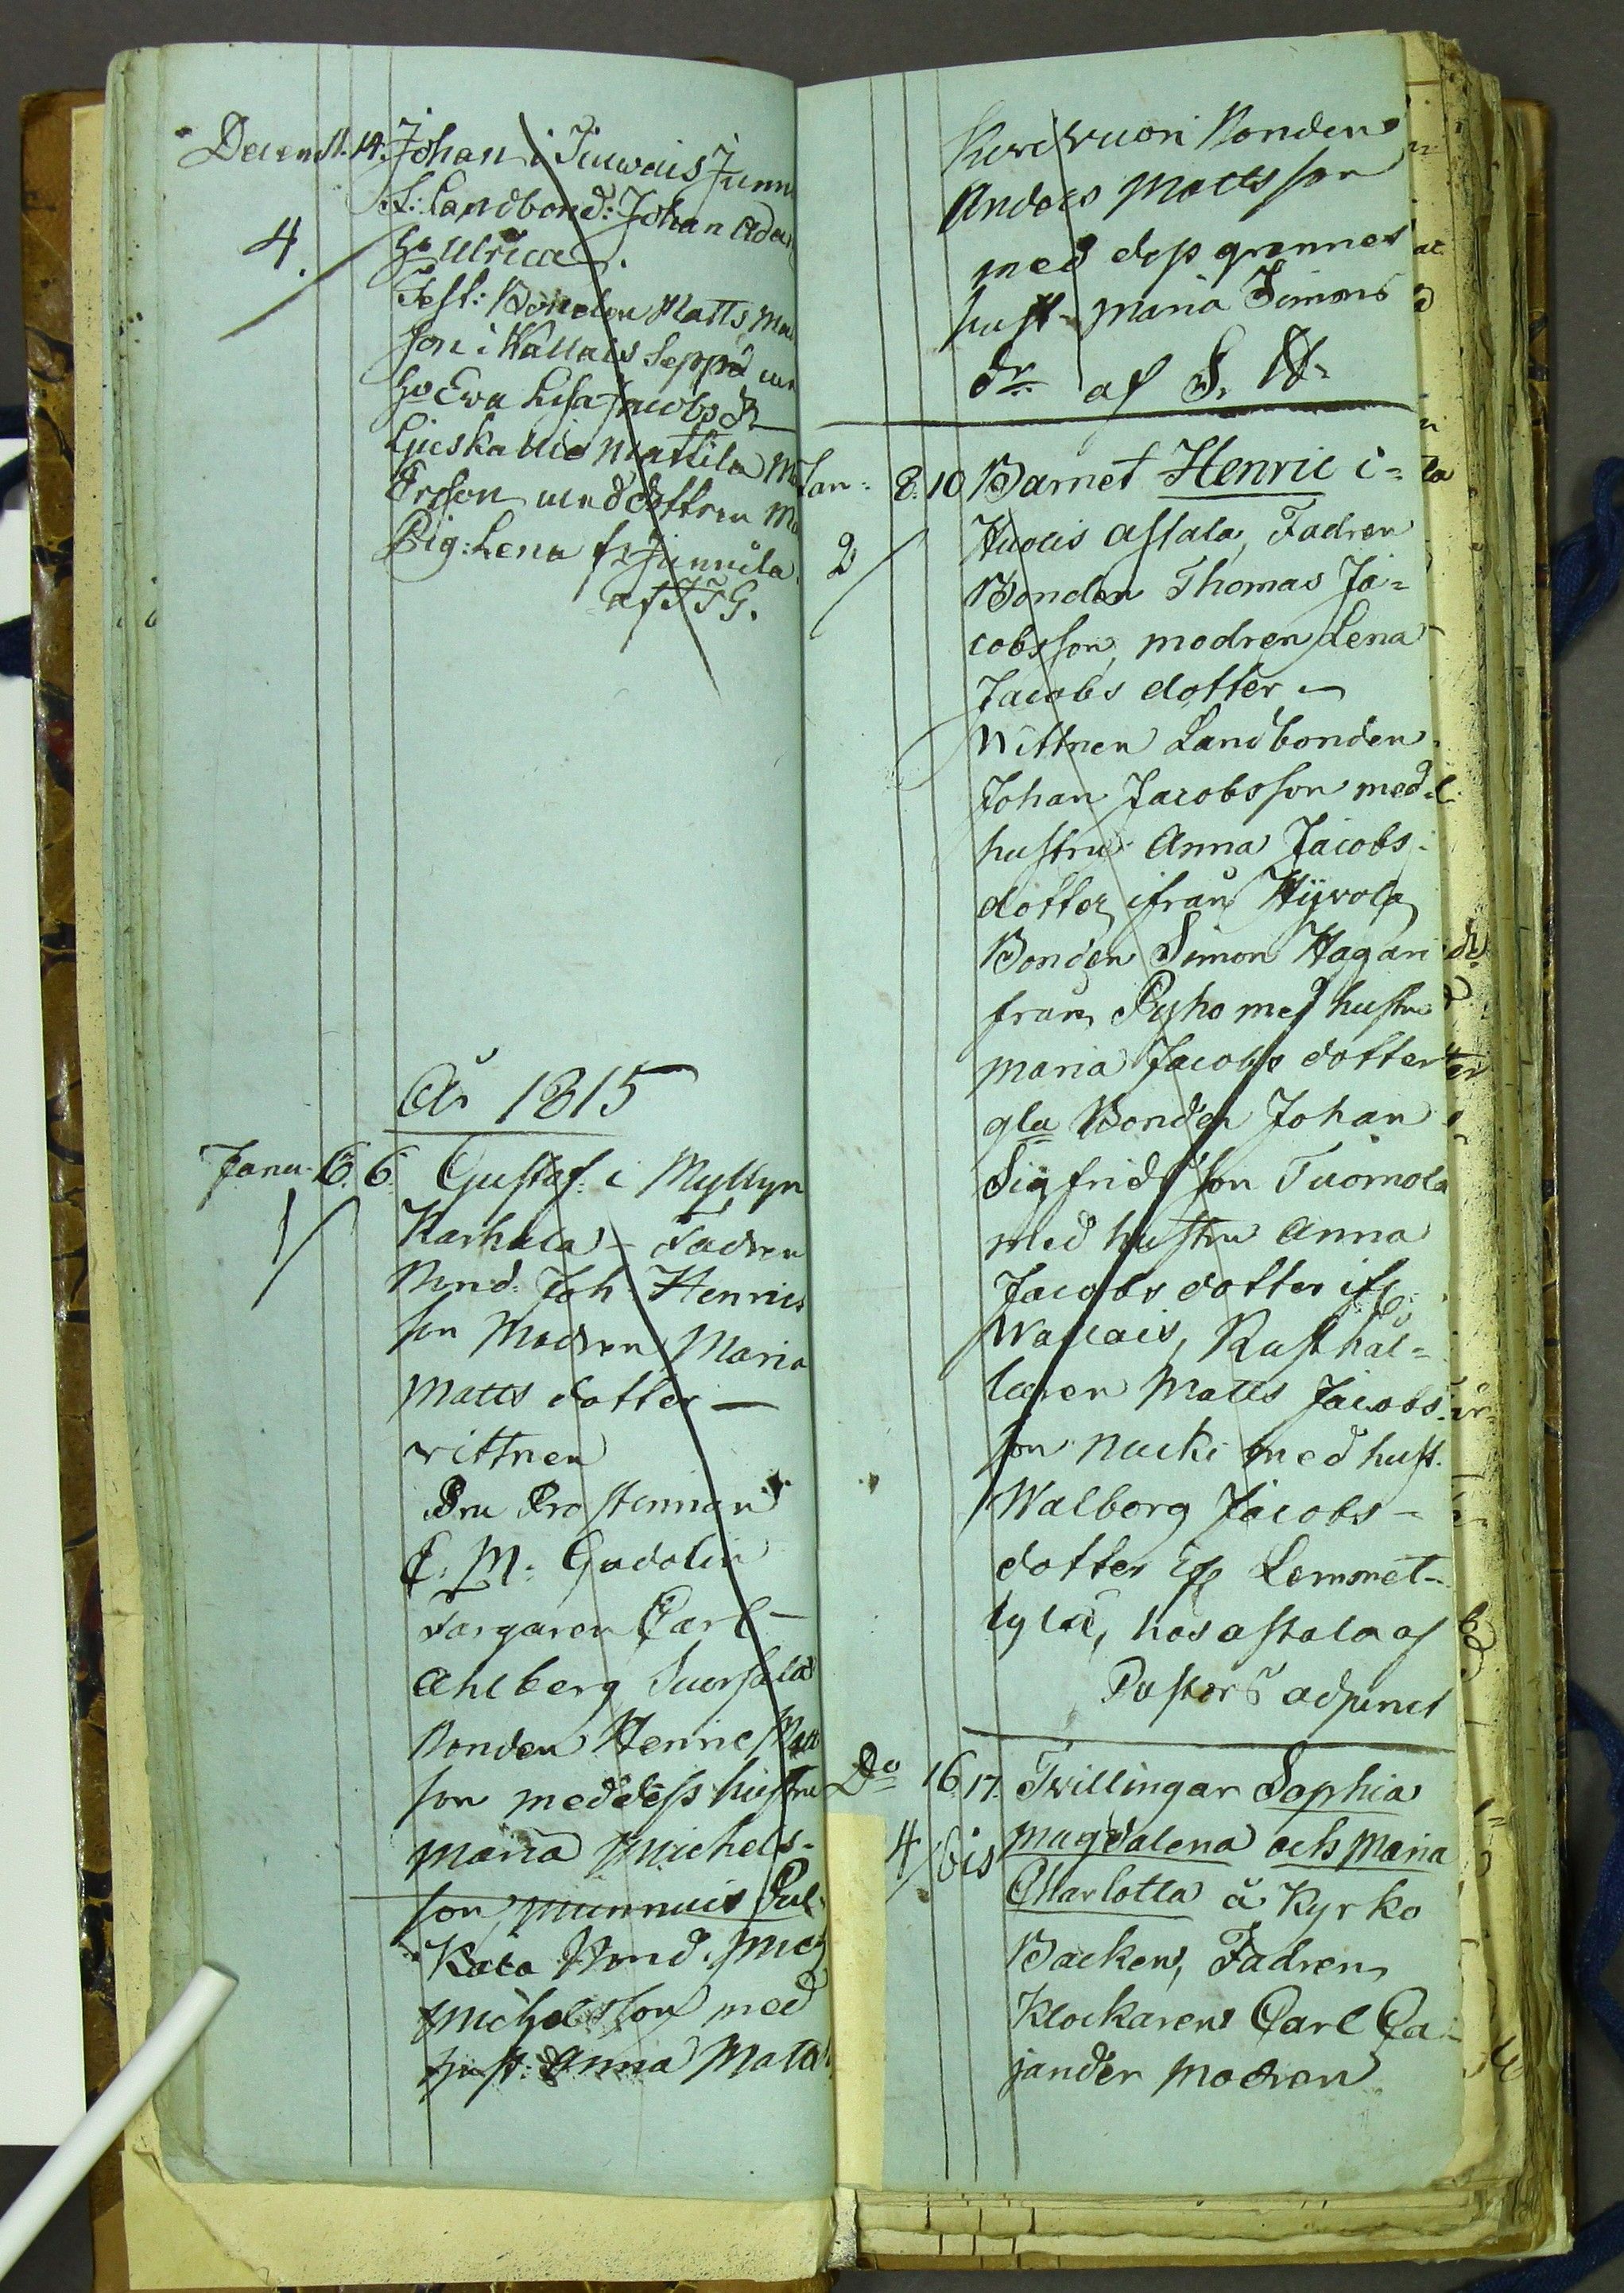 Decem 11. 14. Johan i Juwais Junn
S: Landbond: Johan Ada
4. h:o Ulrica.
Test: Bonden Matts Ma
son i Kallais Seppä
h:o Eva Lisa Jacobs dr
Ljuskallio Mattila
Ersson med dottren Ma
Pig: Lena fr Junnila.
af J T G.
År 1815
Janu- 6. 6. Gustaf i Myllyn
1 Karhula - Fadren
Bond: Joh: Henrics
son Modren Maria
Matts dotter —
wittnen
Pru Prostinnan
C: M: Gadolin
Färgaren Carl
Ahlberg
Bonden Henric Matt
son med dess hustru
Maria Michels-
son Munnuis Pul
Kala Bond. Mich
Michelsson med
hust: Anna Matts
Kurivuori Bonden
Anders Mattsson
med dess grannes
hust- Maria Simons
dr. af S. W.
Jan: 8. 10 Barnet Henric i-
2 Huois Astala, Fadren
Bonden Thomas Ja-
cobsson, modren Lena
Jacobs dotter —
Wittnen Landbonden
Johan Jacobsson med
hustru Anna Jacobs-
dotter ifrån Hyvola
Bonden Simon Hagan
från Pyho med hustru
Maria Jacobs dotter
gla Bonden Johan
Sigfridsson Tuomola
med hustru Anna
Jacobs dotter ifr:
Wallais, Rusthål-
laren Matts Jacobs-
son Nucki med hust.
Walborg Jacobs-
dotter ifr Lemmet-
tylä, hos Astala af
Pastors adjunct
D:o 16. 17. Twillingar Sophia
4 bis Magdalena och Maria
Charlotta å Kyrko
Backen, Fadren
Klockaren Carl Ca-
jander Modren